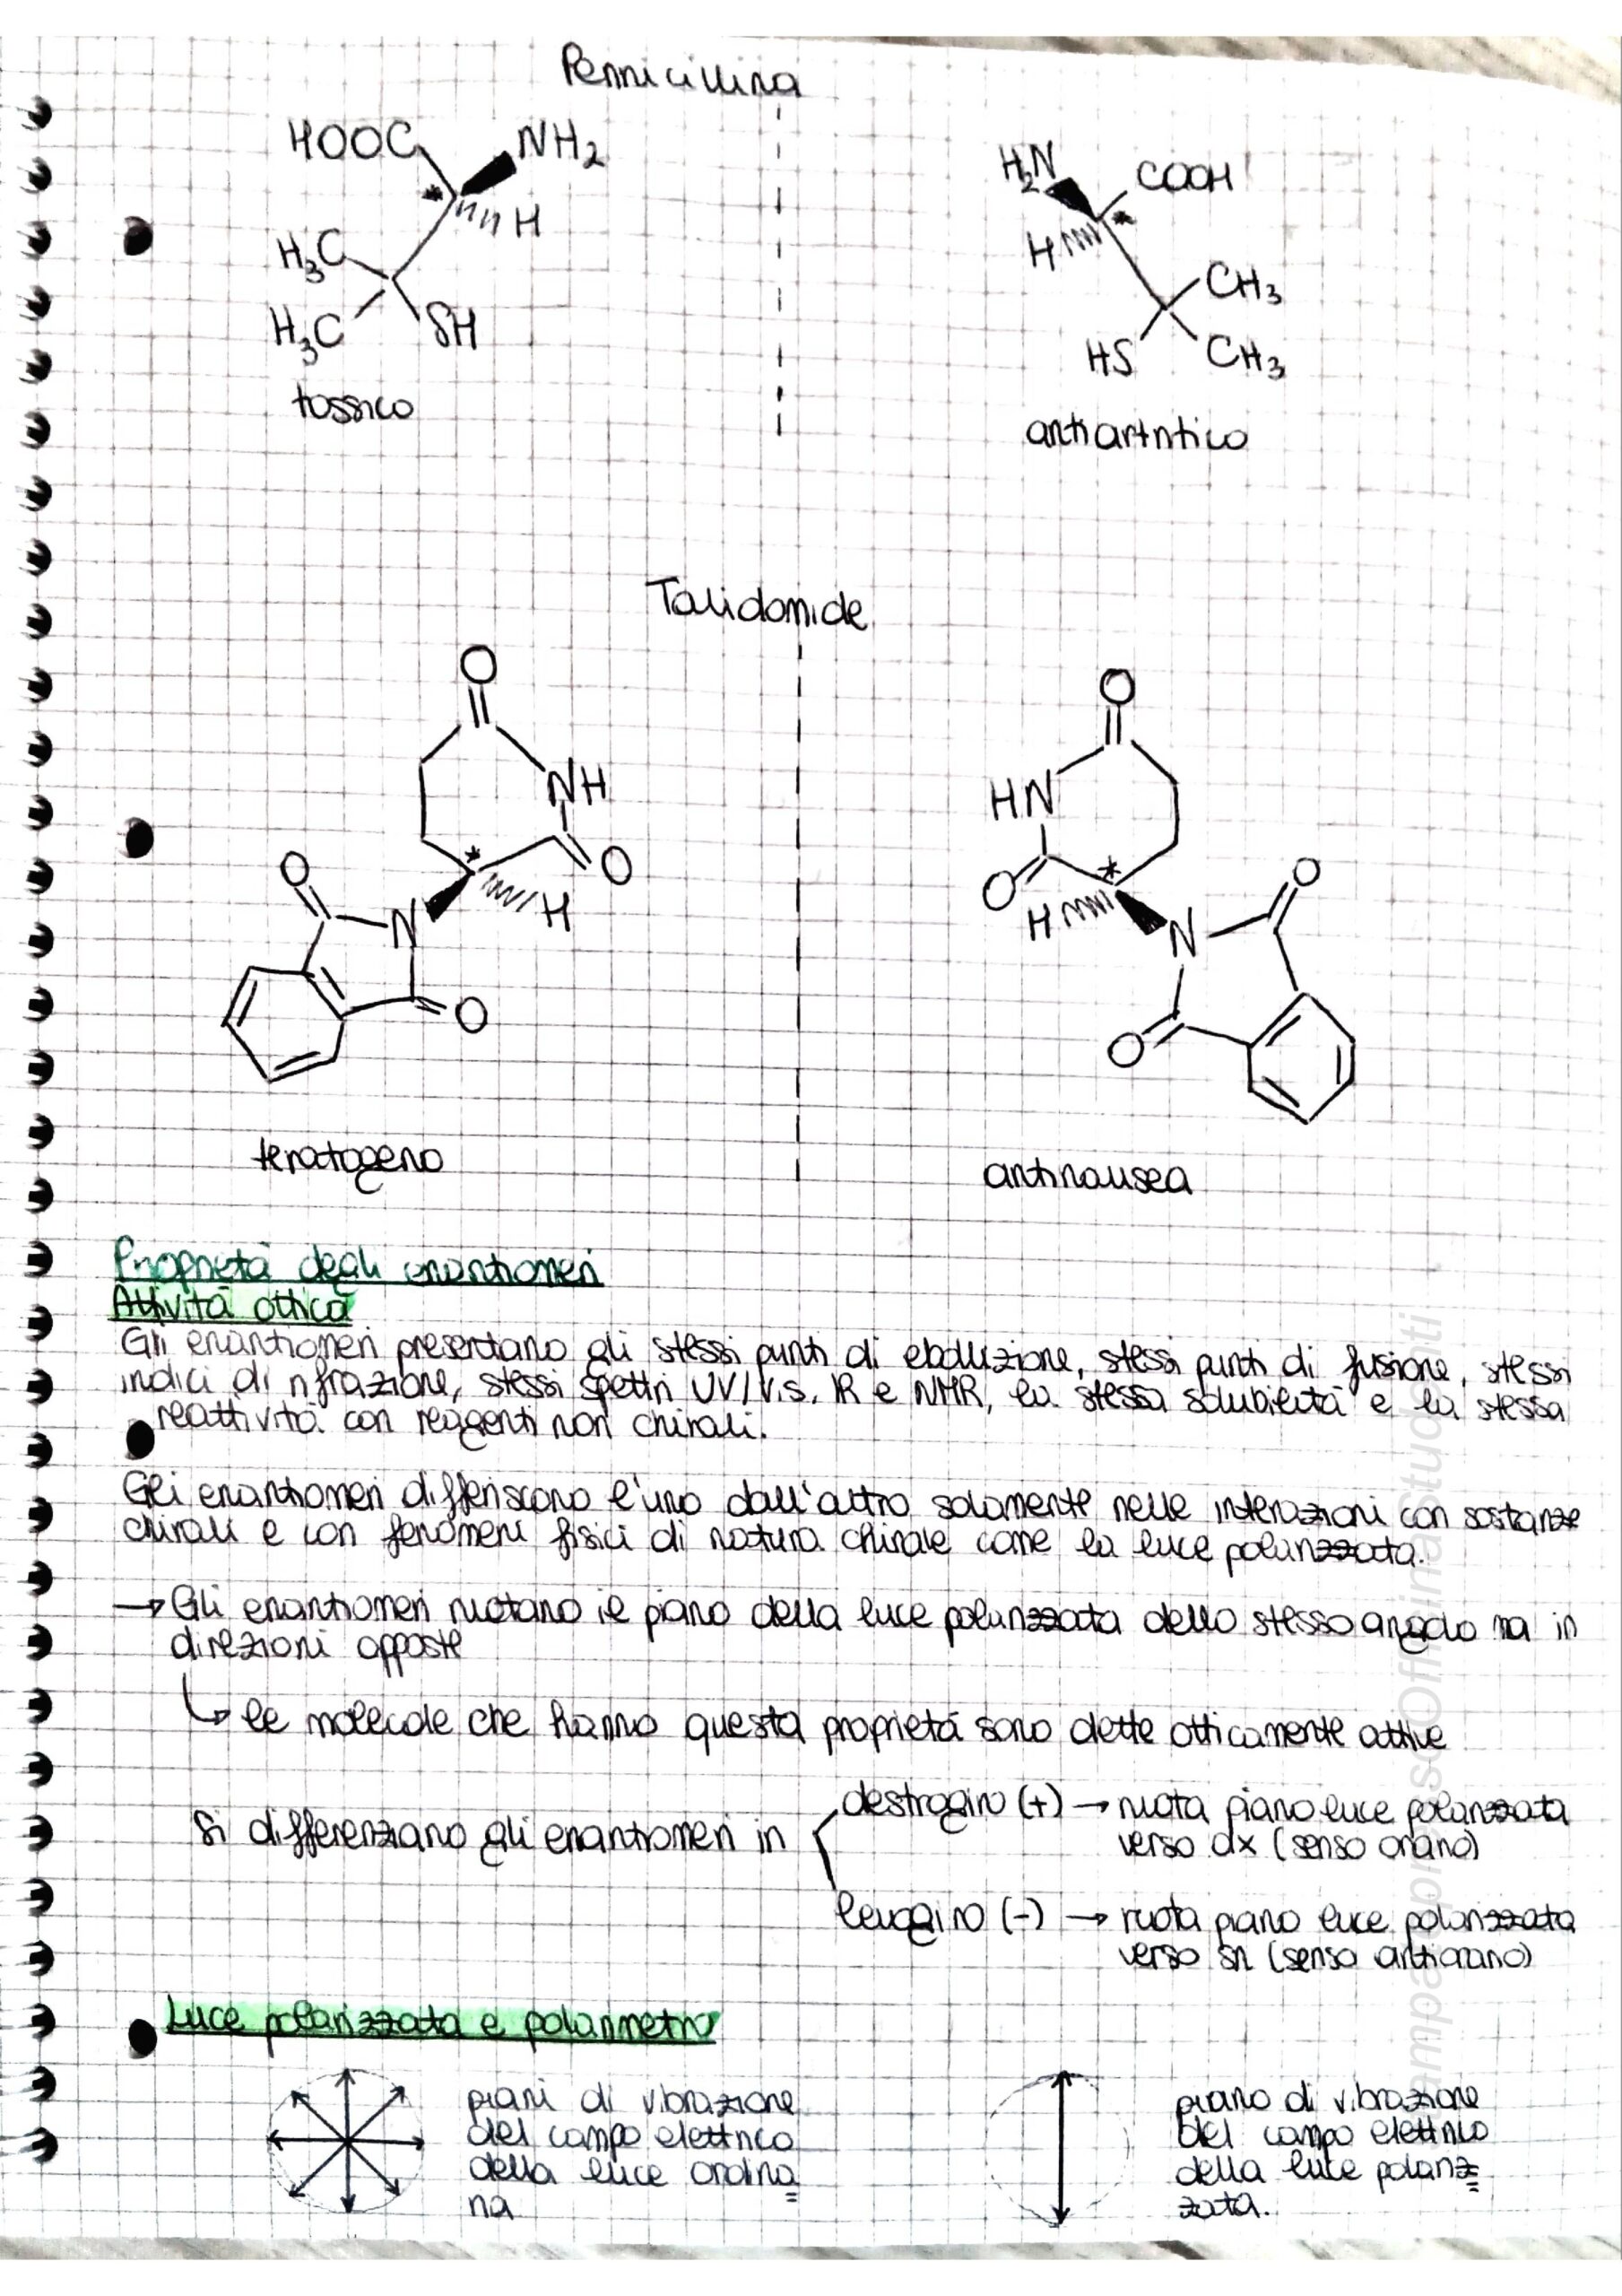 Pennicillina
HOOC NH2
* H
H3C
H3C SH
tossico
H2N COOH
H *
CH3
HS CH3
antiartritico
Talidomide
O
NH
* O
O N H
O
teratogeno
O
HN
O * O
H N
O
antinausea
Proprietà degli enantiomeri
Attività ottica
Gli enantiomeri presentano gli stessi punti di ebollizione, stessi punti di fusione, stessi
indici di rifrazione, stessi spettri UV/Vis. IR e NMR, la stessa solubilità e la stessa
reattività con reagenti non chirali.
Gli enantiomeri differiscono l'uno dall'altro solamente nelle interazioni con sostanze
chirali e con fenomeni fisici di natura chirale come la luce polarizzata.
→ Gli enantiomeri ruotano il piano della luce polarizzata dello stesso angolo ma in
direzioni opposte
↳ le molecole che hanno questa proprietà sono dette otticamente attive
Si differenziano gli enantiomeri in
destrogiro (+) → ruota piano luce polarizzata
verso dx (senso orario)
levogiro (-) → ruota piano luce polarizzata
verso sn (senso antiorario)
Luce polarizzata e polarimetro
piani di vibrazione
del campo elettrico
della luce ordina
ria
piano di vibrazione
del campo elettrico
della luce polariz
zata.